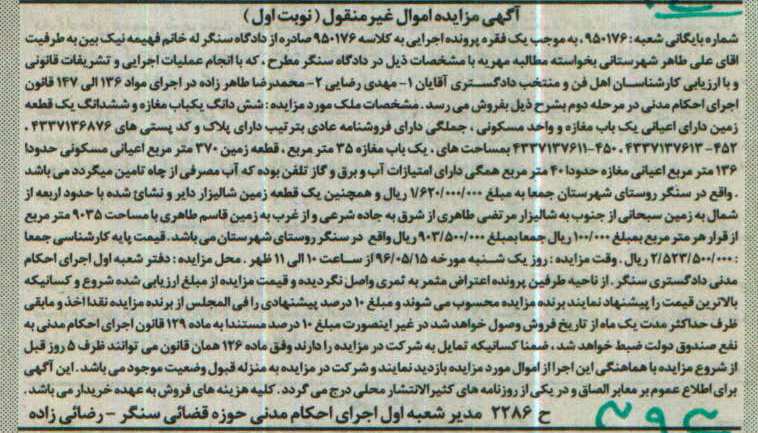 آگهی مزایده اموال غیر منقول (نوبت اول)
شماره بایگانی شعبه : ۹۵۰۱۷۶ ، به موجب یک فقره پرونده اجرایی به کلاسه ۹۵۰۱۷۶ صادره از دادگاه سنگر له خانم فهیمه نیک بین به طرفیت
اقای علی طاهر شهرستانی بخواسته مطالبه مهریه با مشخصات ذیل در دادگاه سنگر مطرح ، که با انجام عملیات اجرایی و تشریفات قانونی
و با ارزیابی کارشناسان اهل فن و منتخب دادگستری آقایان ۱- مهدی رضایی ۲- محمدرضا طاهر زاده در اجرای مواد ۱۳۶ الی ۱۴۷ قانون
اجرای احکام مدنی در مرحله دوم بشرح ذیل بفروش می رسد . مشخصات ملک مورد مزایده : شش دانگ یکباب مغازه و ششدانگ یک قطعه
زمین دارای اعیانی یک باب مغازه و واحد مسکونی ، جملگی دارای فروشنامه عادی بترتیب دارای پلاک و کد پستی های ۴۳۳۷۱۳۶۸۷۶ .
۴۵۲- ۴۳۳۷۱۳۷۶۱۳ . ۴۵۰-۴۳۳۷۱۳۷۶۱۱ بمساحت های ، یک باب مغازه ۳۵ متر مربع ، قطعه زمین ۳۷۰ متر مربع اعیانی مسکونی حدودا
۱۳۶ متر مربع اعیانی مغازه حدودا ۴۰ متر مربع همگی دارای امتیازات آب و برق و گاز تلفن بوده که آب مصرفی از چاه تامین میگردد می باشد
. واقع در سنگر روستای شهرستان جمعا به مبلغ ۱/۶۲۰/۰۰۰/۰۰۰ ریال و همچنین یک قطعه زمین شالیزار دایر و نشائی شده با حدود اربعه از
شمال به زمین سبحانی از جنوب به شالیزار مرتضی طاهری از شرق به جاده شرعی و از غرب به زمین قاسم طاهری با مساحت ۹۰۳۵ متر مربع
از قرار هر متر مربع بمبلغ ۱۰۰/۰۰۰ ریال جمعا بمبلغ ۹۰۳/۵۰۰/۰۰۰ ریال واقع در سنگر روستای شهرستان می باشد . قیمت پایه کارشناسی جمعا
: ۲/۵۲۳/۵۰۰/۰۰۰ ریال . وقت مزایده : روز یک شنبه مورخه ۹۶/۰۵/۱۵ از ساعت ۱۰ الی ۱۱ ظهر . محل مزایده : دفتر شعبه اول اجرای احکام
مدنی دادگستری سنگر . از ناحیه طرفین پرونده اعتراض مثمر به ثمری واصل نگردیده و قیمت مزایده از مبلغ ارزیابی شده شروع و کسانیکه
بالاترین قیمت را پیشنهاد نمایند برنده مزایده محسوب می شوند و مبلغ ۱۰ درصد پیشنهادی را فی المجلس از برنده مزایده نقدا اخذ و مابقی
ظرف حداکثر مدت یک ماه از تاریخ فروش وصول خواهد شد در غیر اینصورت مبلغ ۱۰ درصد مستندا به ماده ۱۲۹ قانون اجرای احکام مدنی به
نفع صندوق دولت ضبط خواهد شد ، ضمنا کسانیکه تمایل به شرکت در مزایده را دارند وفق ماده ۱۲۶ همان قانون می توانند ظرف ۵ روز قبل
از شروع مزایده با هماهنگی این اجرا از اموال مورد مزایده بازدید نمایند و شرکت در مزایده به منزله قبول وضعیت موجود می باشد . این آگهی
برای اطلاع عموم بر معابر الصاق و در یکی از روزنامه های کثیرالانتشار محلی درج می گردد . کلیه هزینه های فروش به عهده خریدار می باشد .
ح ۲۲۸۶ مدیر شعبه اول اجرای احکام مدنی حوزه قضائی سنگر – رضائی زاده